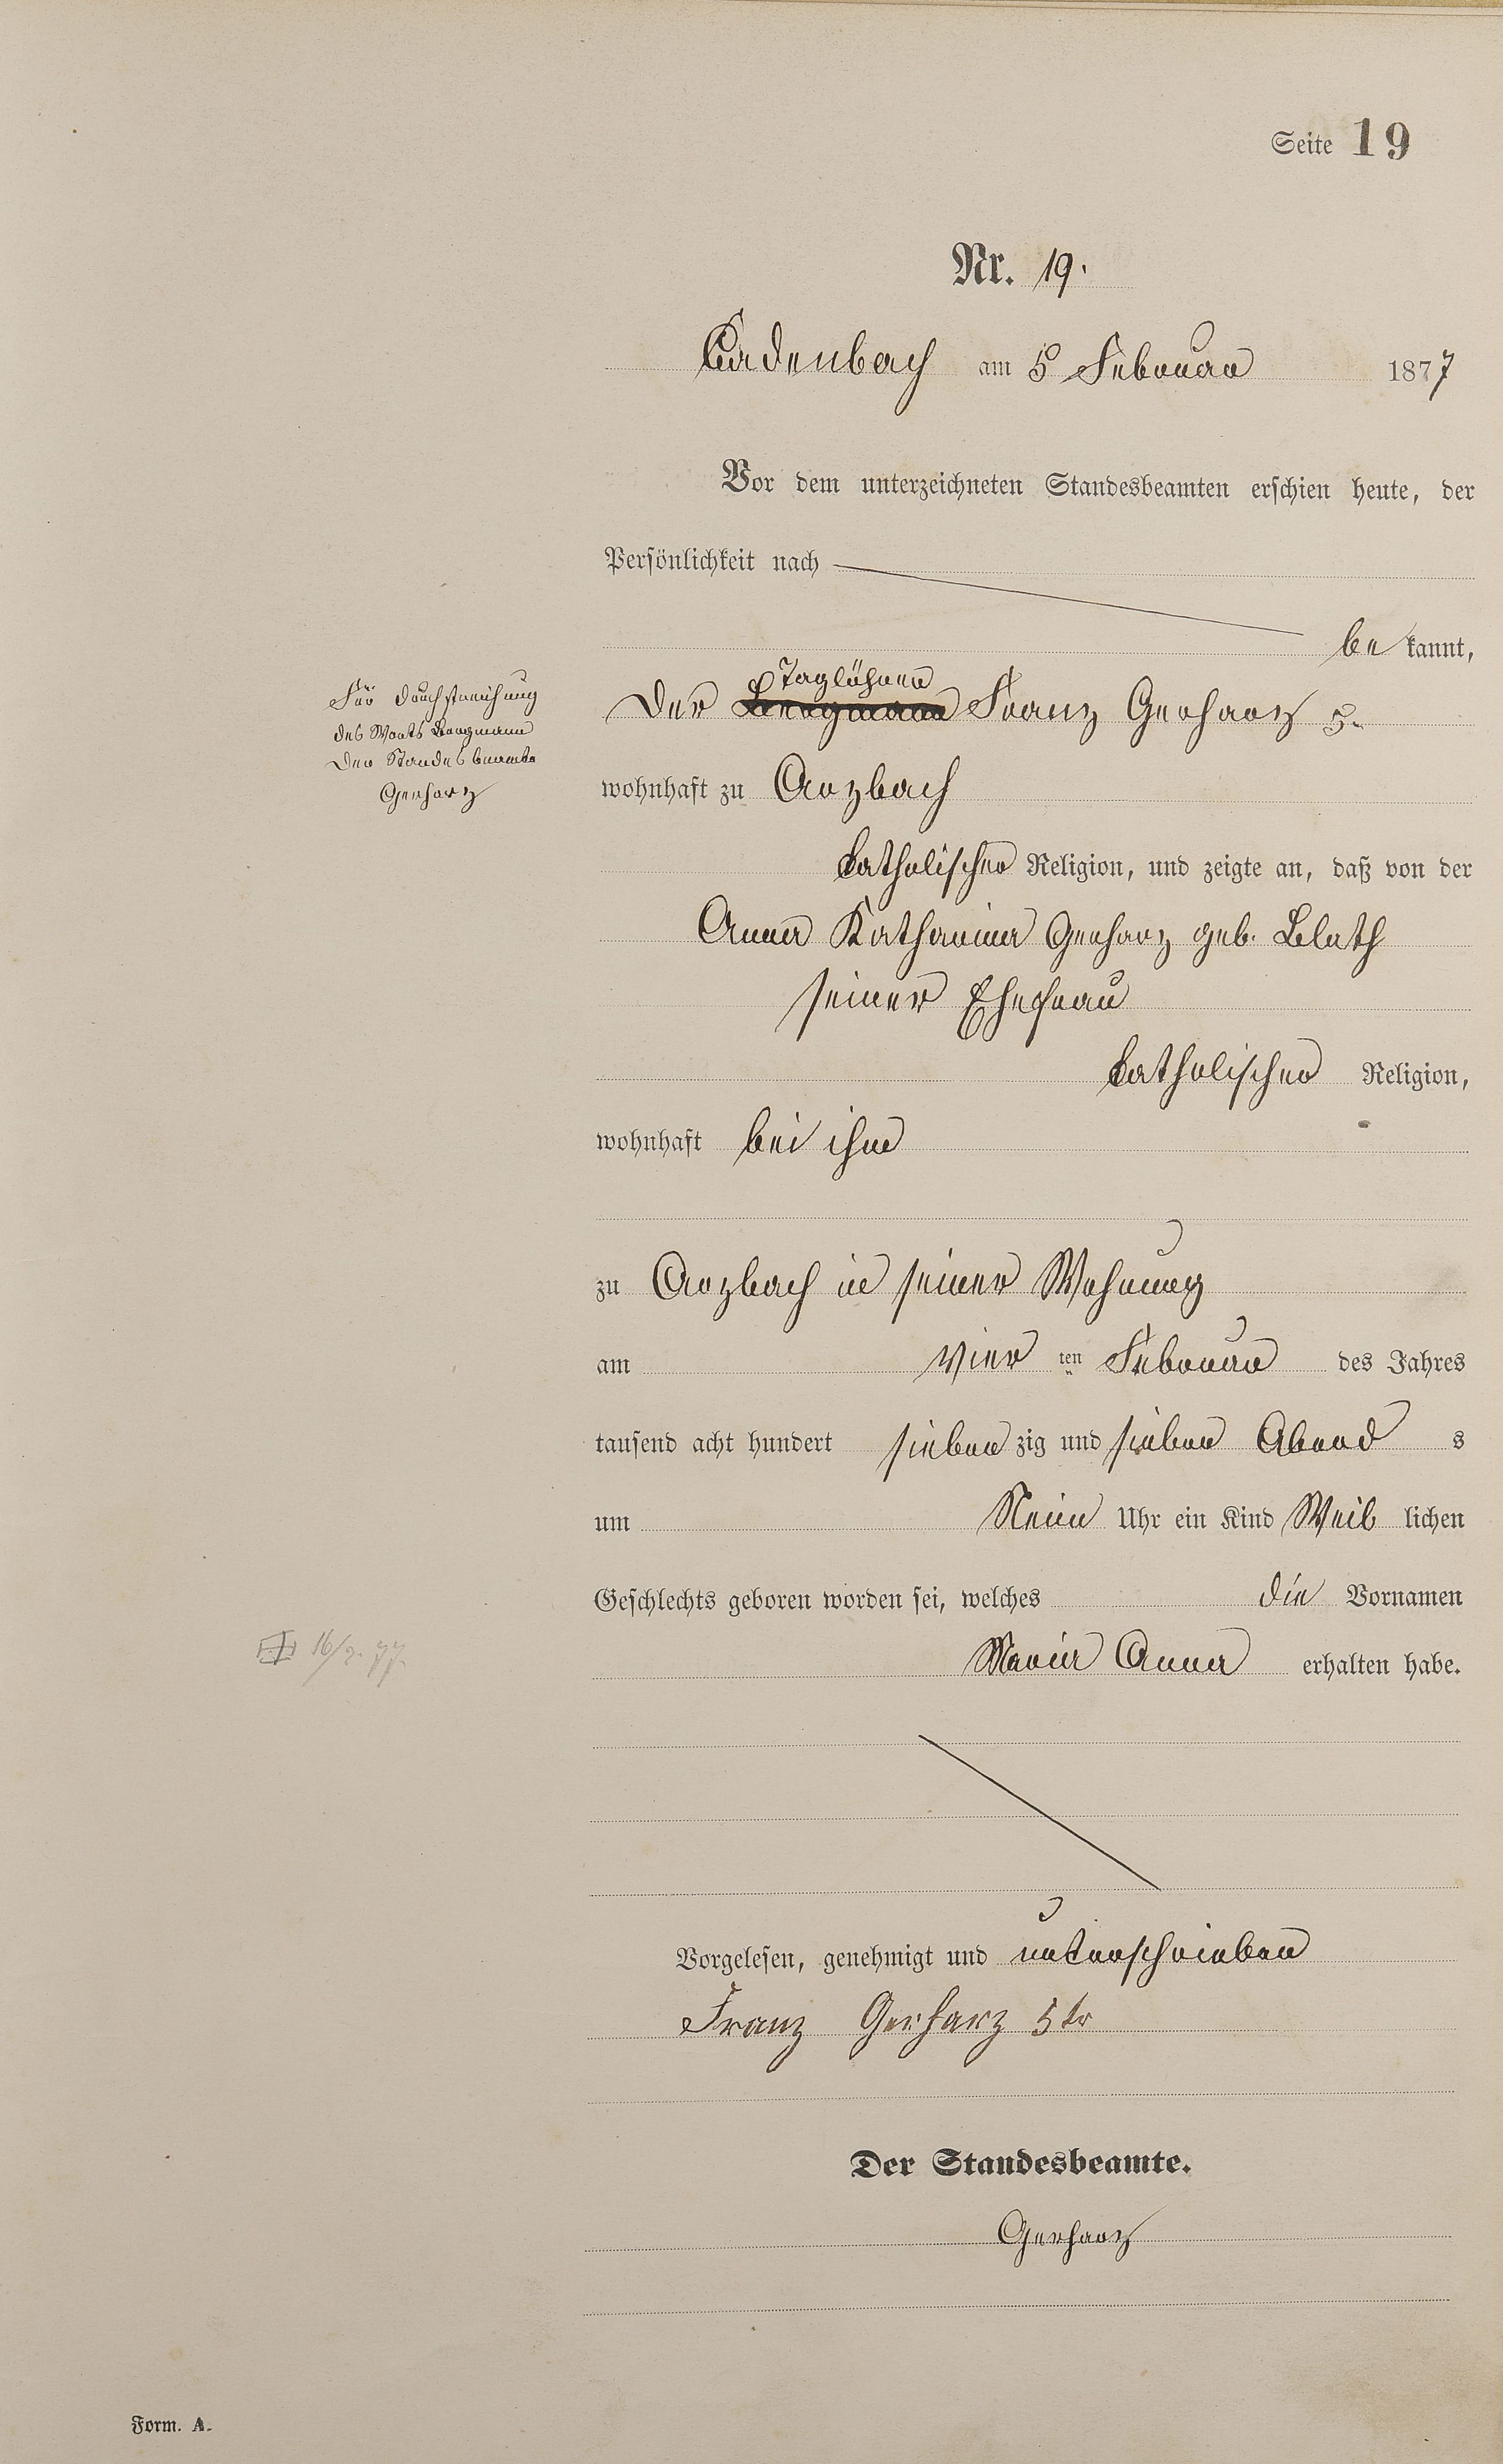 Seite 19
Nr. 19.
Cadenbach am 5 Februar 1877
Vor dem unterzeichneten Standesbeamten erschien heute, der
Persönlichkeit nach
be kannt,
Taglöhner
Der Bergmann Franz Gerharz 5.
Für Durchstreichung
des Worts Bergmann
Der Standesbeamte
Gerharz
wohnhaft zu Arzbach
katholischer Religion, und zeigte an, daß von der
Anna Katharina Gerharz geb. Blath
seiner Ehefrau
katholischer Religion,
wohnhaft bei ihm
zu Arzbach in seiner Wohnung
am vier ten Februar des Jahres
tausend acht hundert sieben zig und sieben Abend s
um Neun Uhr ein Kind Weib lichen
Geschlechts geboren worden sei, welches die Vornamen
16/2. 77.
Maria Anna erhalten habe.
Vorgelesen, genehmigt und unterschrieben
Franz Gerharz 5tr
Der Standesbeamte.
Gerharz
Form. A.